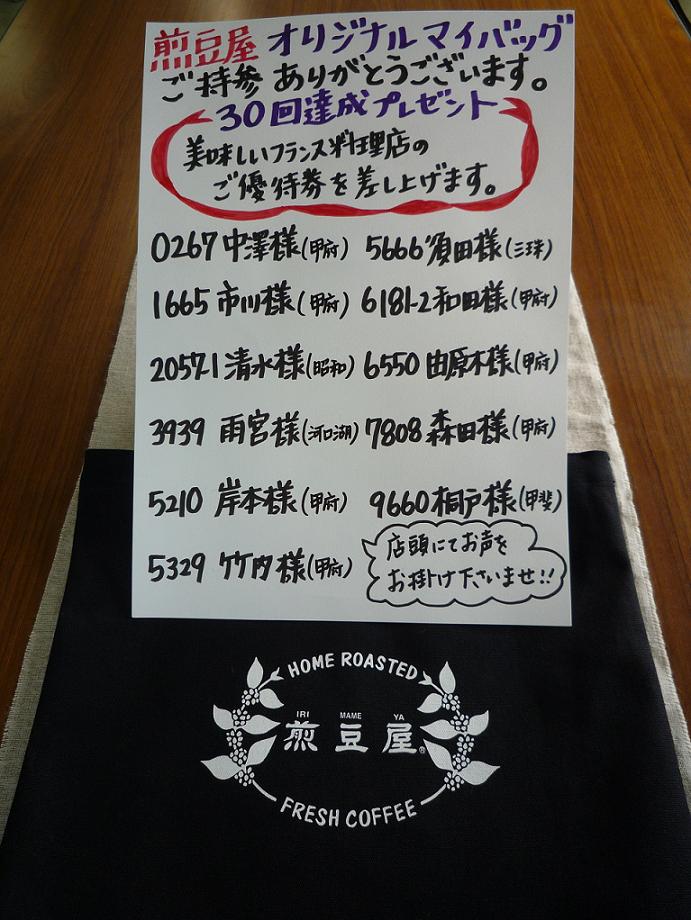 煎豆屋 オリジナルマイバッグ
ご持参 ありがとうございます。
30回達成プレゼント
美味しいフランス料理店の
ご優待券を差し上げます。
0267 中澤様(甲府)
1665 市川様(甲府)
2057-1 清水様(昭和)
3939 雨宮様(河口湖)
5210 岸本様(甲府)
5329 竹内様(甲府)
5666 須田様(三珠)
6181-2 和田様(甲府)
6550 由原木様(甲府)
7808 森田様(甲府)
9660 桐戸様(甲斐)
店頭にてお声を
お掛け下さいませ!!
HOME ROASTED
IRI MAME YA
煎豆屋®
FRESH COFFEE